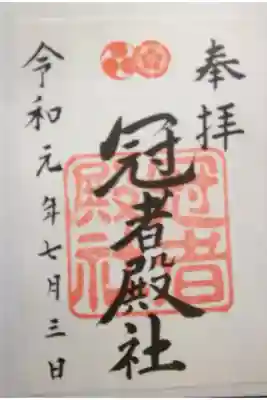 奉拝
冠者殿社
冠者殿社
令和元年七月三日